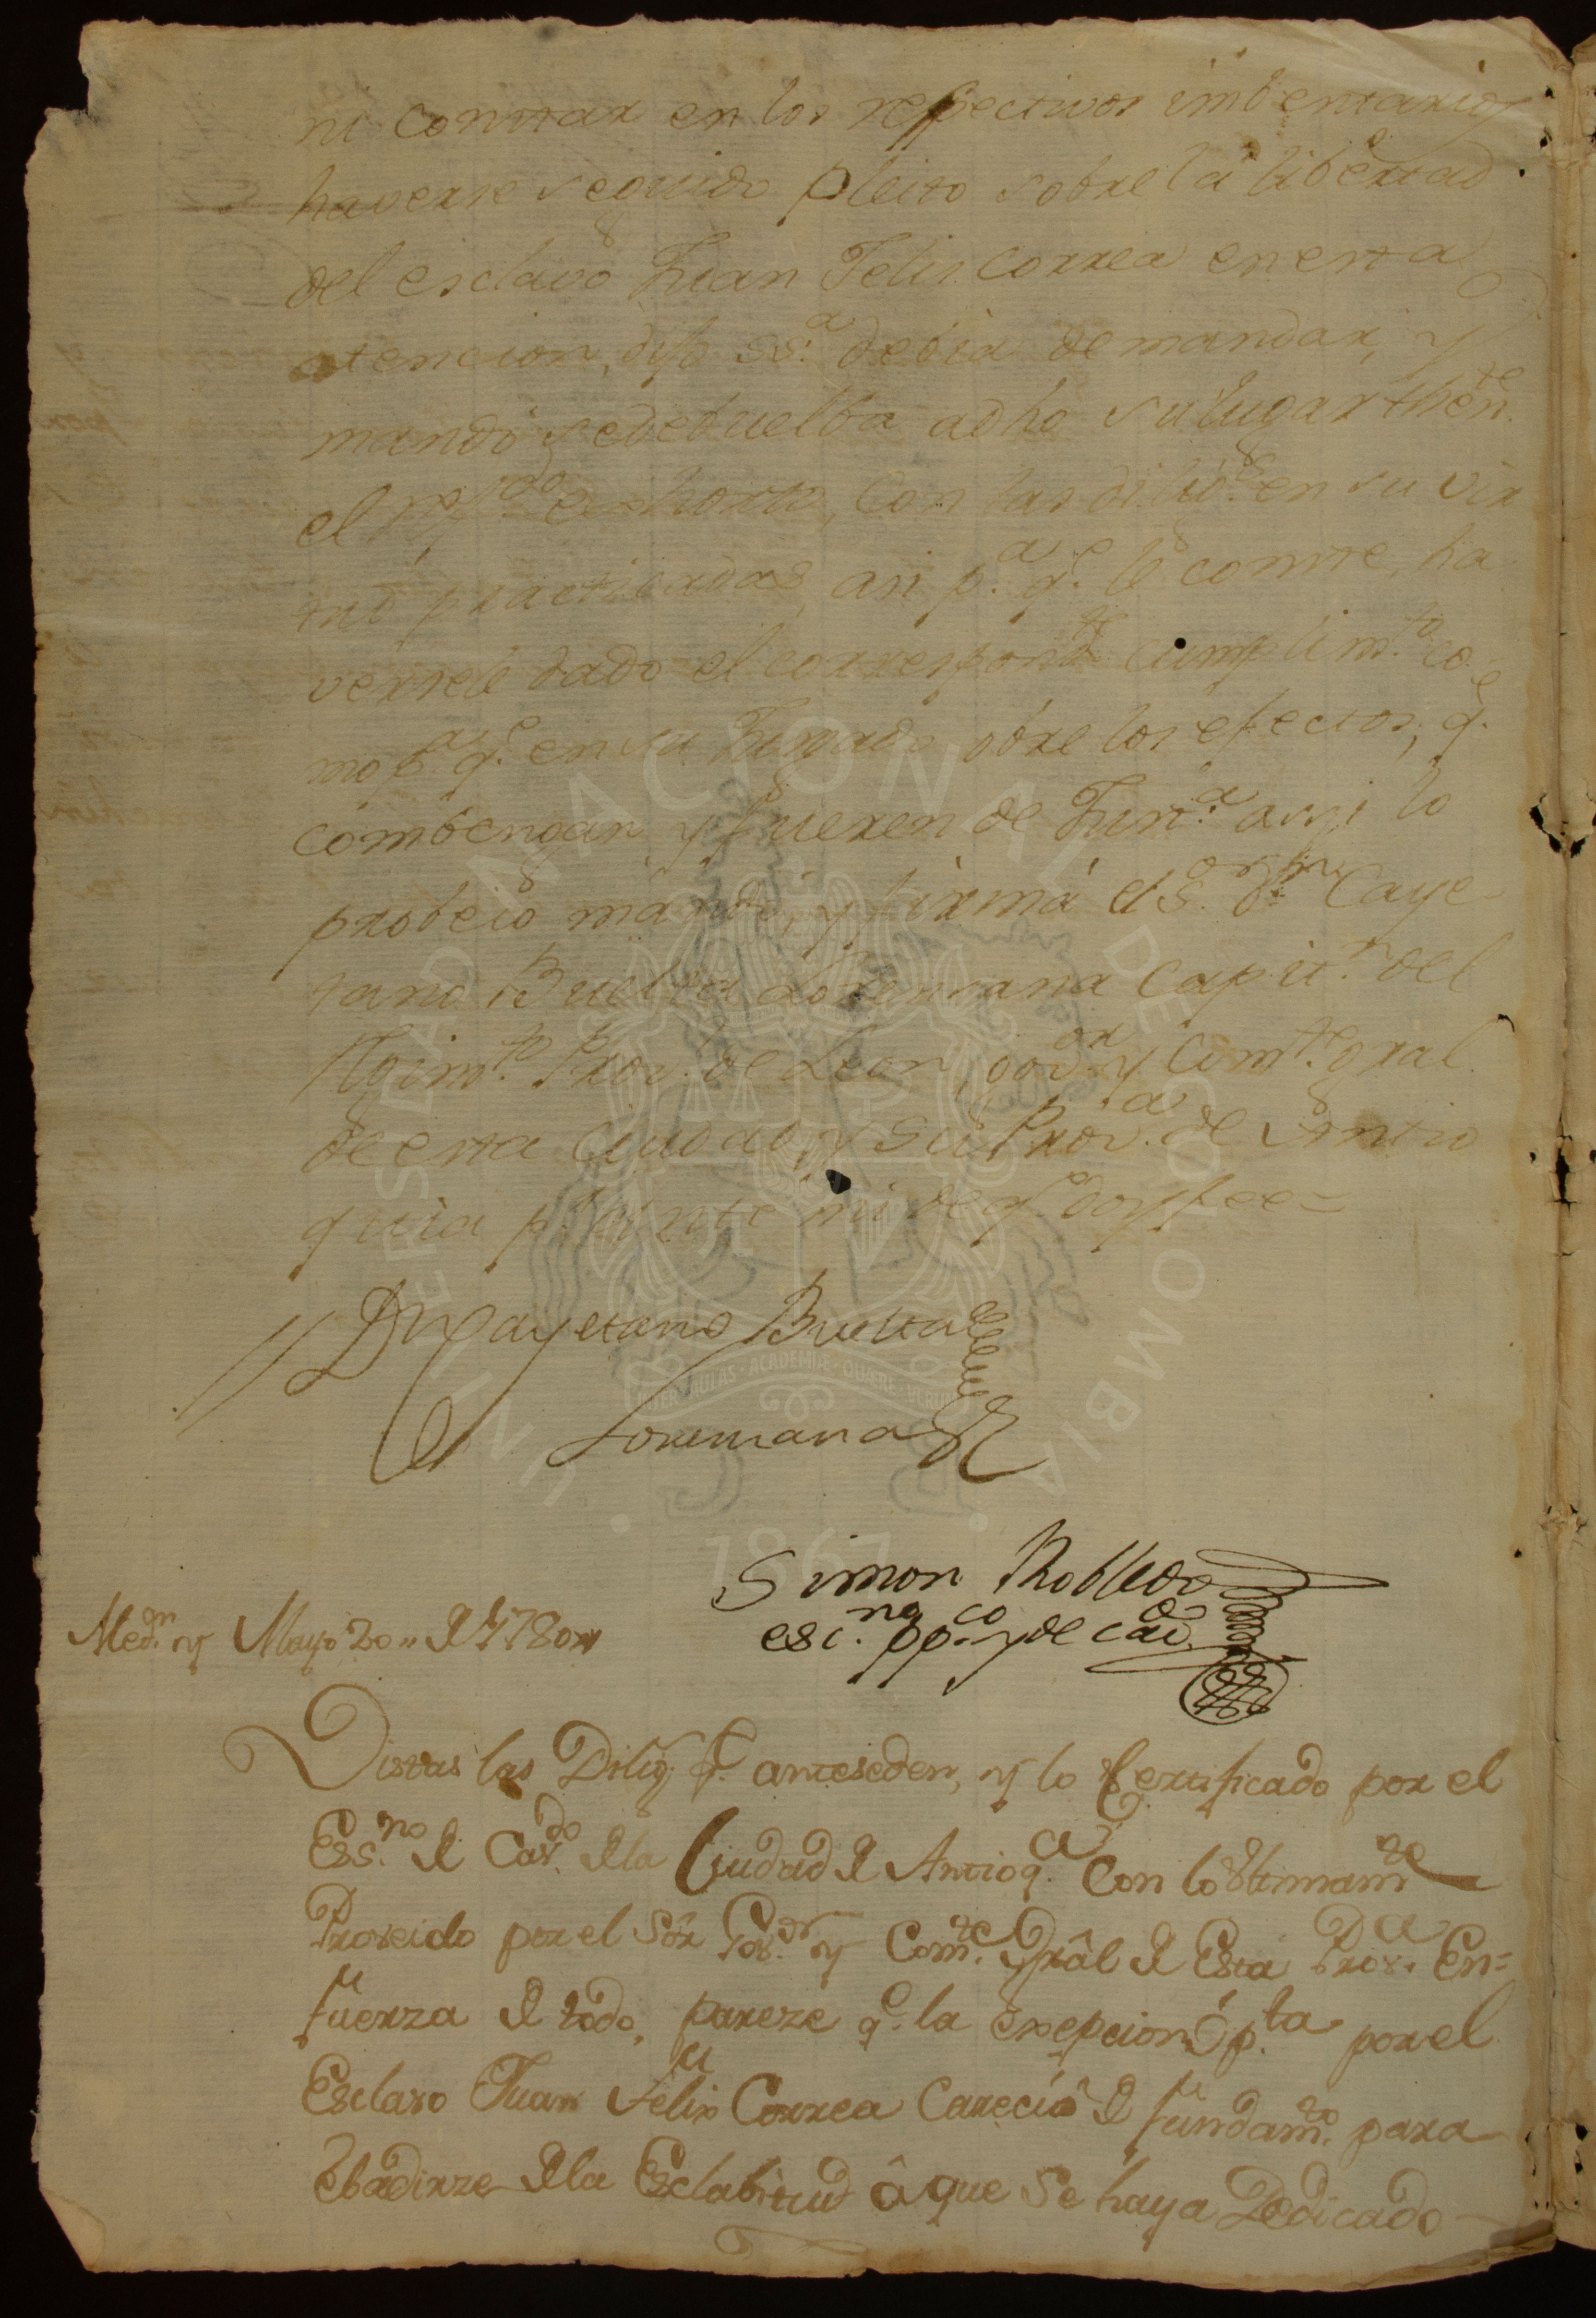 ni constar en los respectivos imbentarios
haverse seguido pleito sobre la libertad
del esclavo Juan Felis Correa en esta
atencion, dijo ss.ª debia de mandar, y
mandó se debuelba a dho su lugar then.te
el ref.do exhorto, con las dilig.s en su vir
tud practicadas, asi p.a q.e le conste, ha
versele dado el correspond.te cumplim.to co
mo p.a q.e en su Jusgado obre los efectos, q.e
combengan y fueren de Just.a assi lo
probeió mandó, y firmá el S.or d.n Caye
tano Buelta Lorensana Capit.n del
Rejim.to Prov. de Leon, gov.or y Com.te gral.
de esta Ciudad, y su Prov.a de Antio
quia p.r ante mi de q.e doy fee=
D.n Cayetano Buelta
Lorensana
Simon Robledo
esc.no pp.co y de cav.do
Med.n y Mayo 20,, de 1780,,
Vistas las Dilig.s q.e anteseden, y lo Certificado por el
Ess.no de Cav.do de la Ciudad de Antioq.a Con lo Vltimam.te
Proveido por el Sór Gov.or y Com.te Grâl de Esta Prov.a En=
fuerza de todo, pareze q.e la Exepcion Op.ta por el
Esclavo Juan Felix Correa Carecio de fundam.to para
Ebadirze de la Esclabitud â que Se haya Dedicado
UNIVERSIDAD NACIONAL DE COLOMBIA
INTER · AULAS · ACADEMIÆ · QUÆRE · VERUM
1867